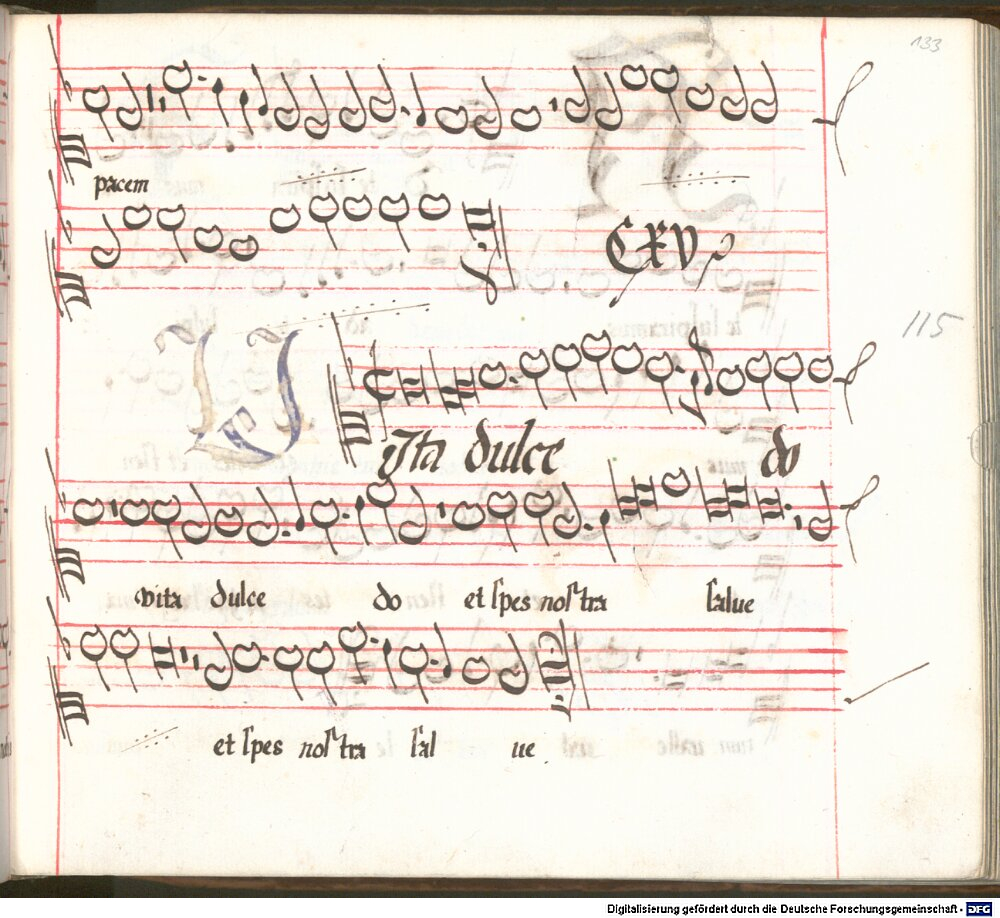 133
pacem
CXV
115
Ita dulce do
vita dulce do et ſpes noſtra ſalue
et ſpes noſtra ſal ue
Digitalisierung gefördert durch die Deutsche Forschungsgemeinschaft - DFG